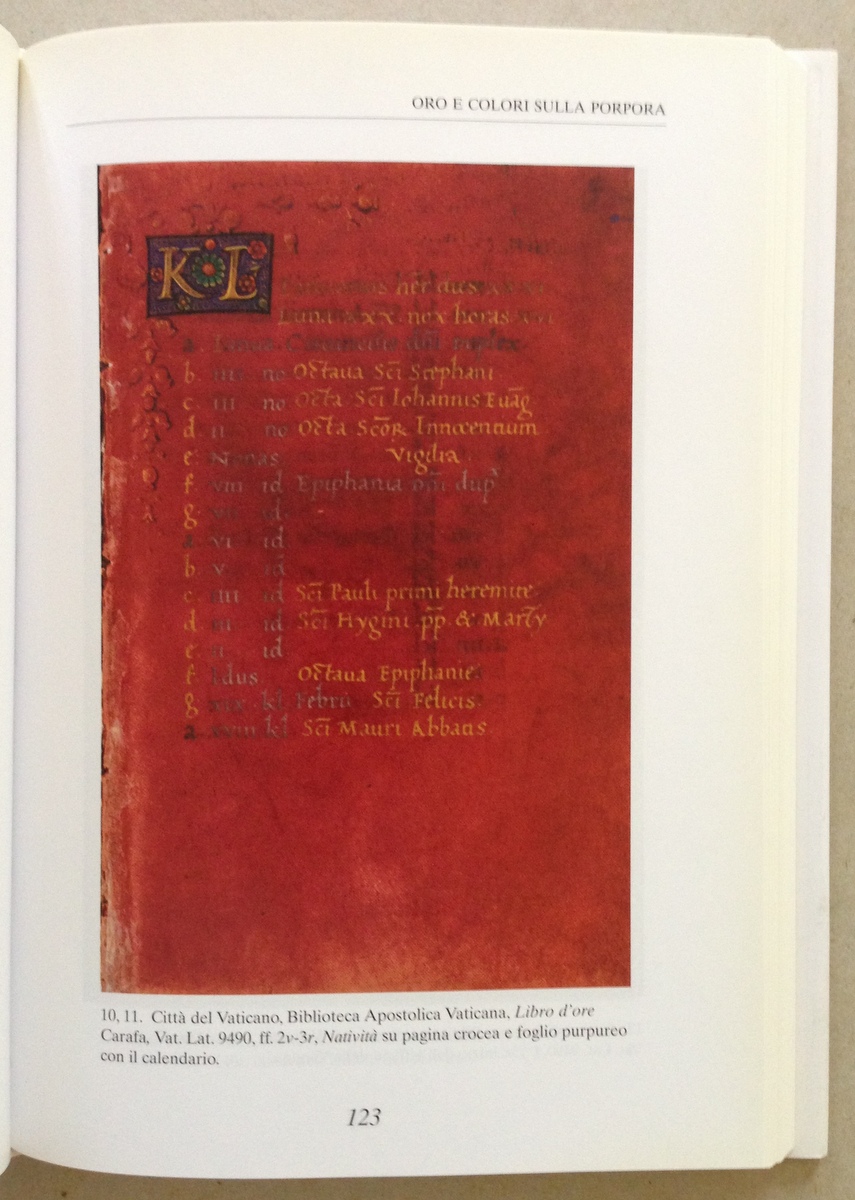 ORO E COLORI SULLA PORPORA
KL
her dies
Luna xxx nox horas xvi
a Ianus Circuncisio dñi duplex
b iiii no Octaua Sc̃i Stephani
c iii no Octa Sc̃i Iohannis Euãg
d ii no Octa Sc̃oꝝ Innocentium
e Nonas Vigilia
f viii id Epiphania dñi dup̃
g vii id
a vi id
b v id
c iiii id Sc̃i Pauli primi heremite
d iii id Sc̃i Hygini pp̃ & Marty
e ii id
f Idus Octaua Epiphanie
g xix kl Februarii Sc̃i Felicis
a xviii kl Sc̃i Mauri Abbatis
10, 11. Città del Vaticano, Biblioteca Apostolica Vaticana, Libro d'ore
Carafa, Vat. Lat. 9490, ff. 2v-3r, Natività su pagina crocea e foglio purpureo
con il calendario.
123